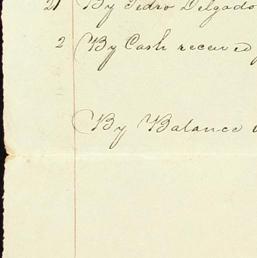 21 By Pedro Delgado
2 By Cash received
By Balance